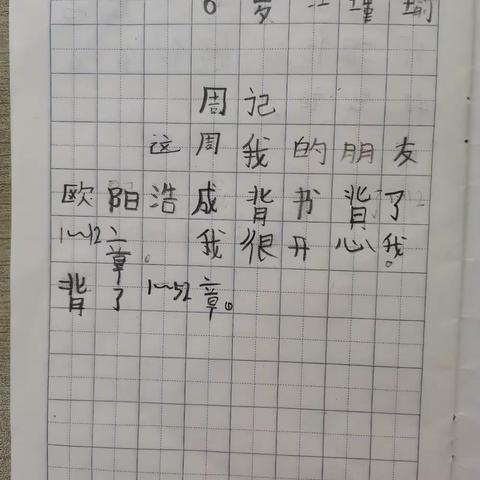 6岁江瑾瑜
周记
这周我的朋友
欧阳浩成背书背了
1~12章。我很开心。我
背了1~52章。